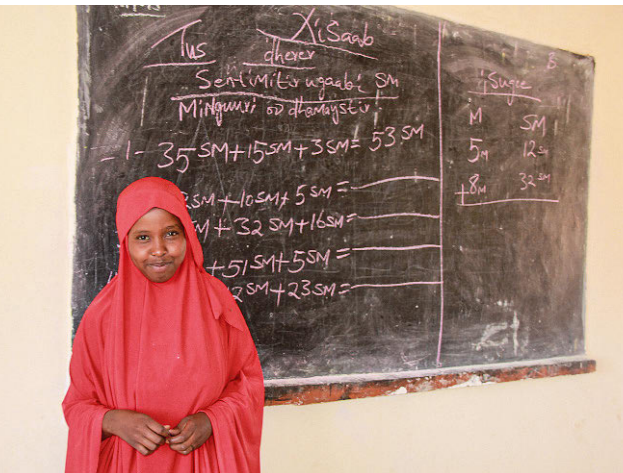 Xisaab
Tus dherer
Sentimitir ugaabi SM
-1- 35SM+15SM+3SM= 53SM
SM+10SM+5SM=
M+32SM+16SM=
+51SM+5SM=
2SM+23SM=
isugee
M SM
5M 12SM
+8M 32SM